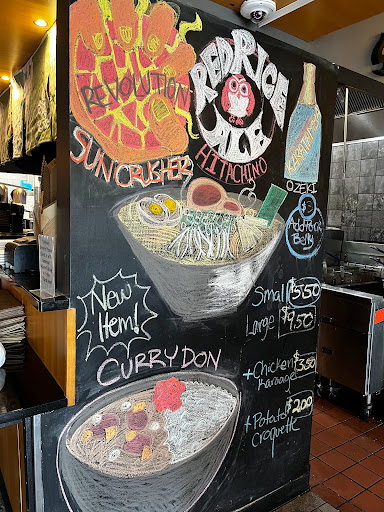 REVOLUTION
SUN CRUSHER
RED RICE
ALE
HITACHINO
OZEKI
Add Pork
Belly
New
Item!
Small $5.50
Large $9.50
CURRY DON
+ Chicken $3.50
Karaage
+ Potato $2.00
Croquette